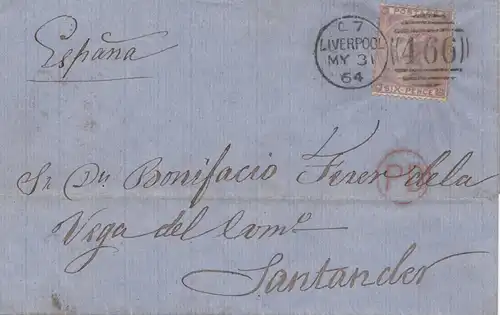 POSTAGE
C 7
LIVERPOOL
MY 31
64
466
SIX PENCE
España
Sr Dn Bonifacio Ferer dela
Vega del Comº
Santander